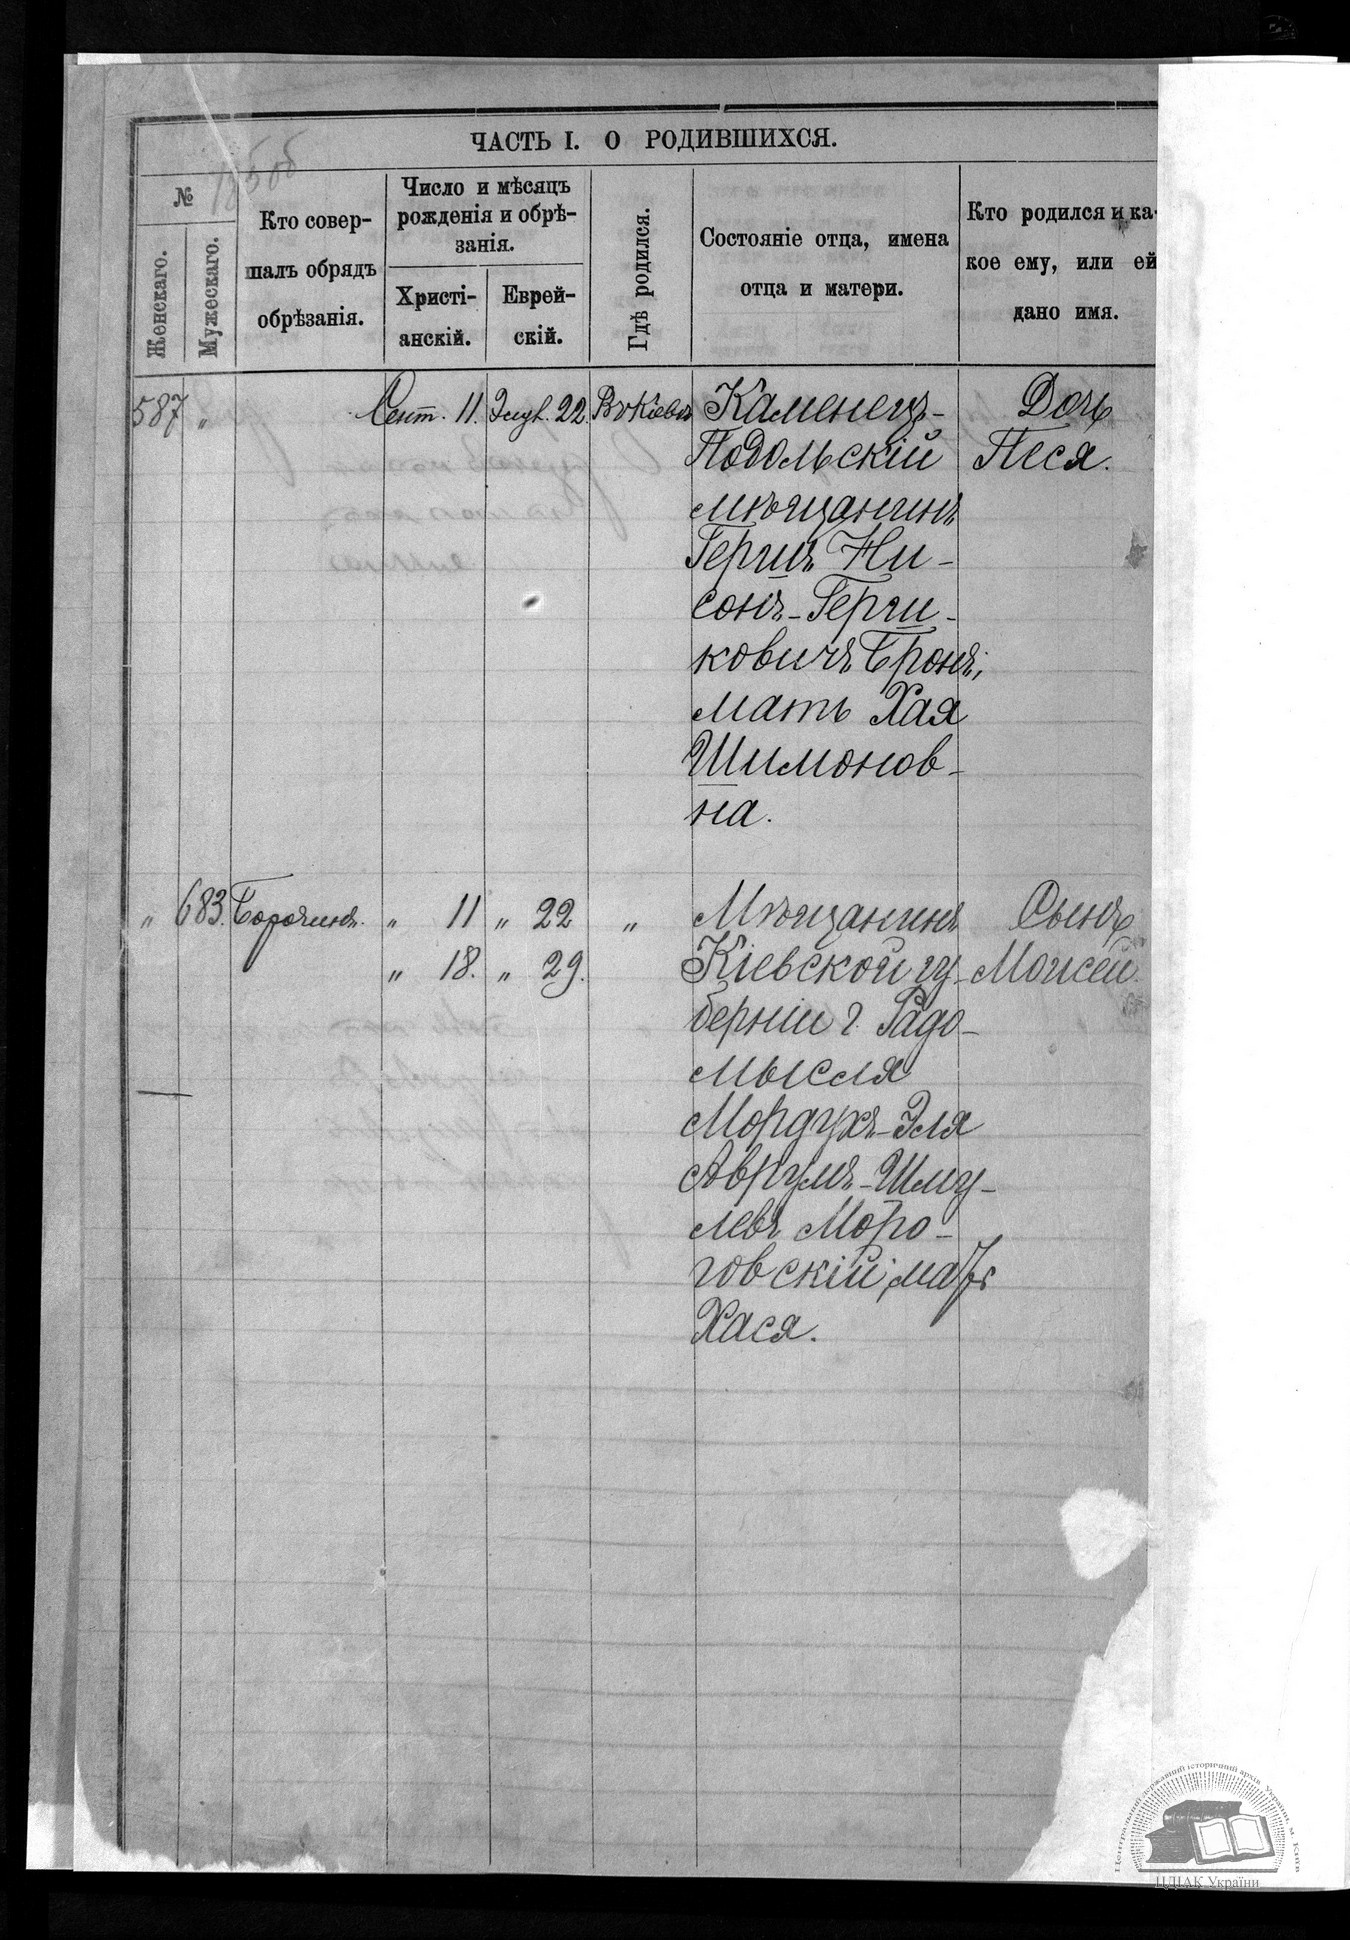 ЧАСТЬ I. О РОДИВШИХСЯ.
№
Женскаго.
Мужескаго.
Кто совер-
шалъ обрядъ
обрѣзанія.
Число и мѣсяцъ
рожденія и обрѣ-
занія.
Христі-
анскій.
Еврей-
скій.
Гдѣ родился.
Состояніе отца, имена
отца и матери.
Кто родился и ка-
кое ему, или ей
дано имя.
587 " Сент. 11. Элул. 22. Въ Кіевѣ
Каменец-
Подольскій
мѣщанинъ
Герцъ Ни-
сонъ-Герш-
ковичъ Бронъ,
мать Хая
Шимонов-
на.
Дочь
Песя.
" 683. " 11 " 22 "
" 18. " 29.
Мѣщанинъ
Кіевской гу-
берніи г. Радо-
мысля
Мордухъ-Эля
Аврумъ-Шму-
левъ Моро-
говскій, мать
Хася.
Сынъ
Моисей.
Центральний державний історичний архів України, м. Київ
ЦДІАК України